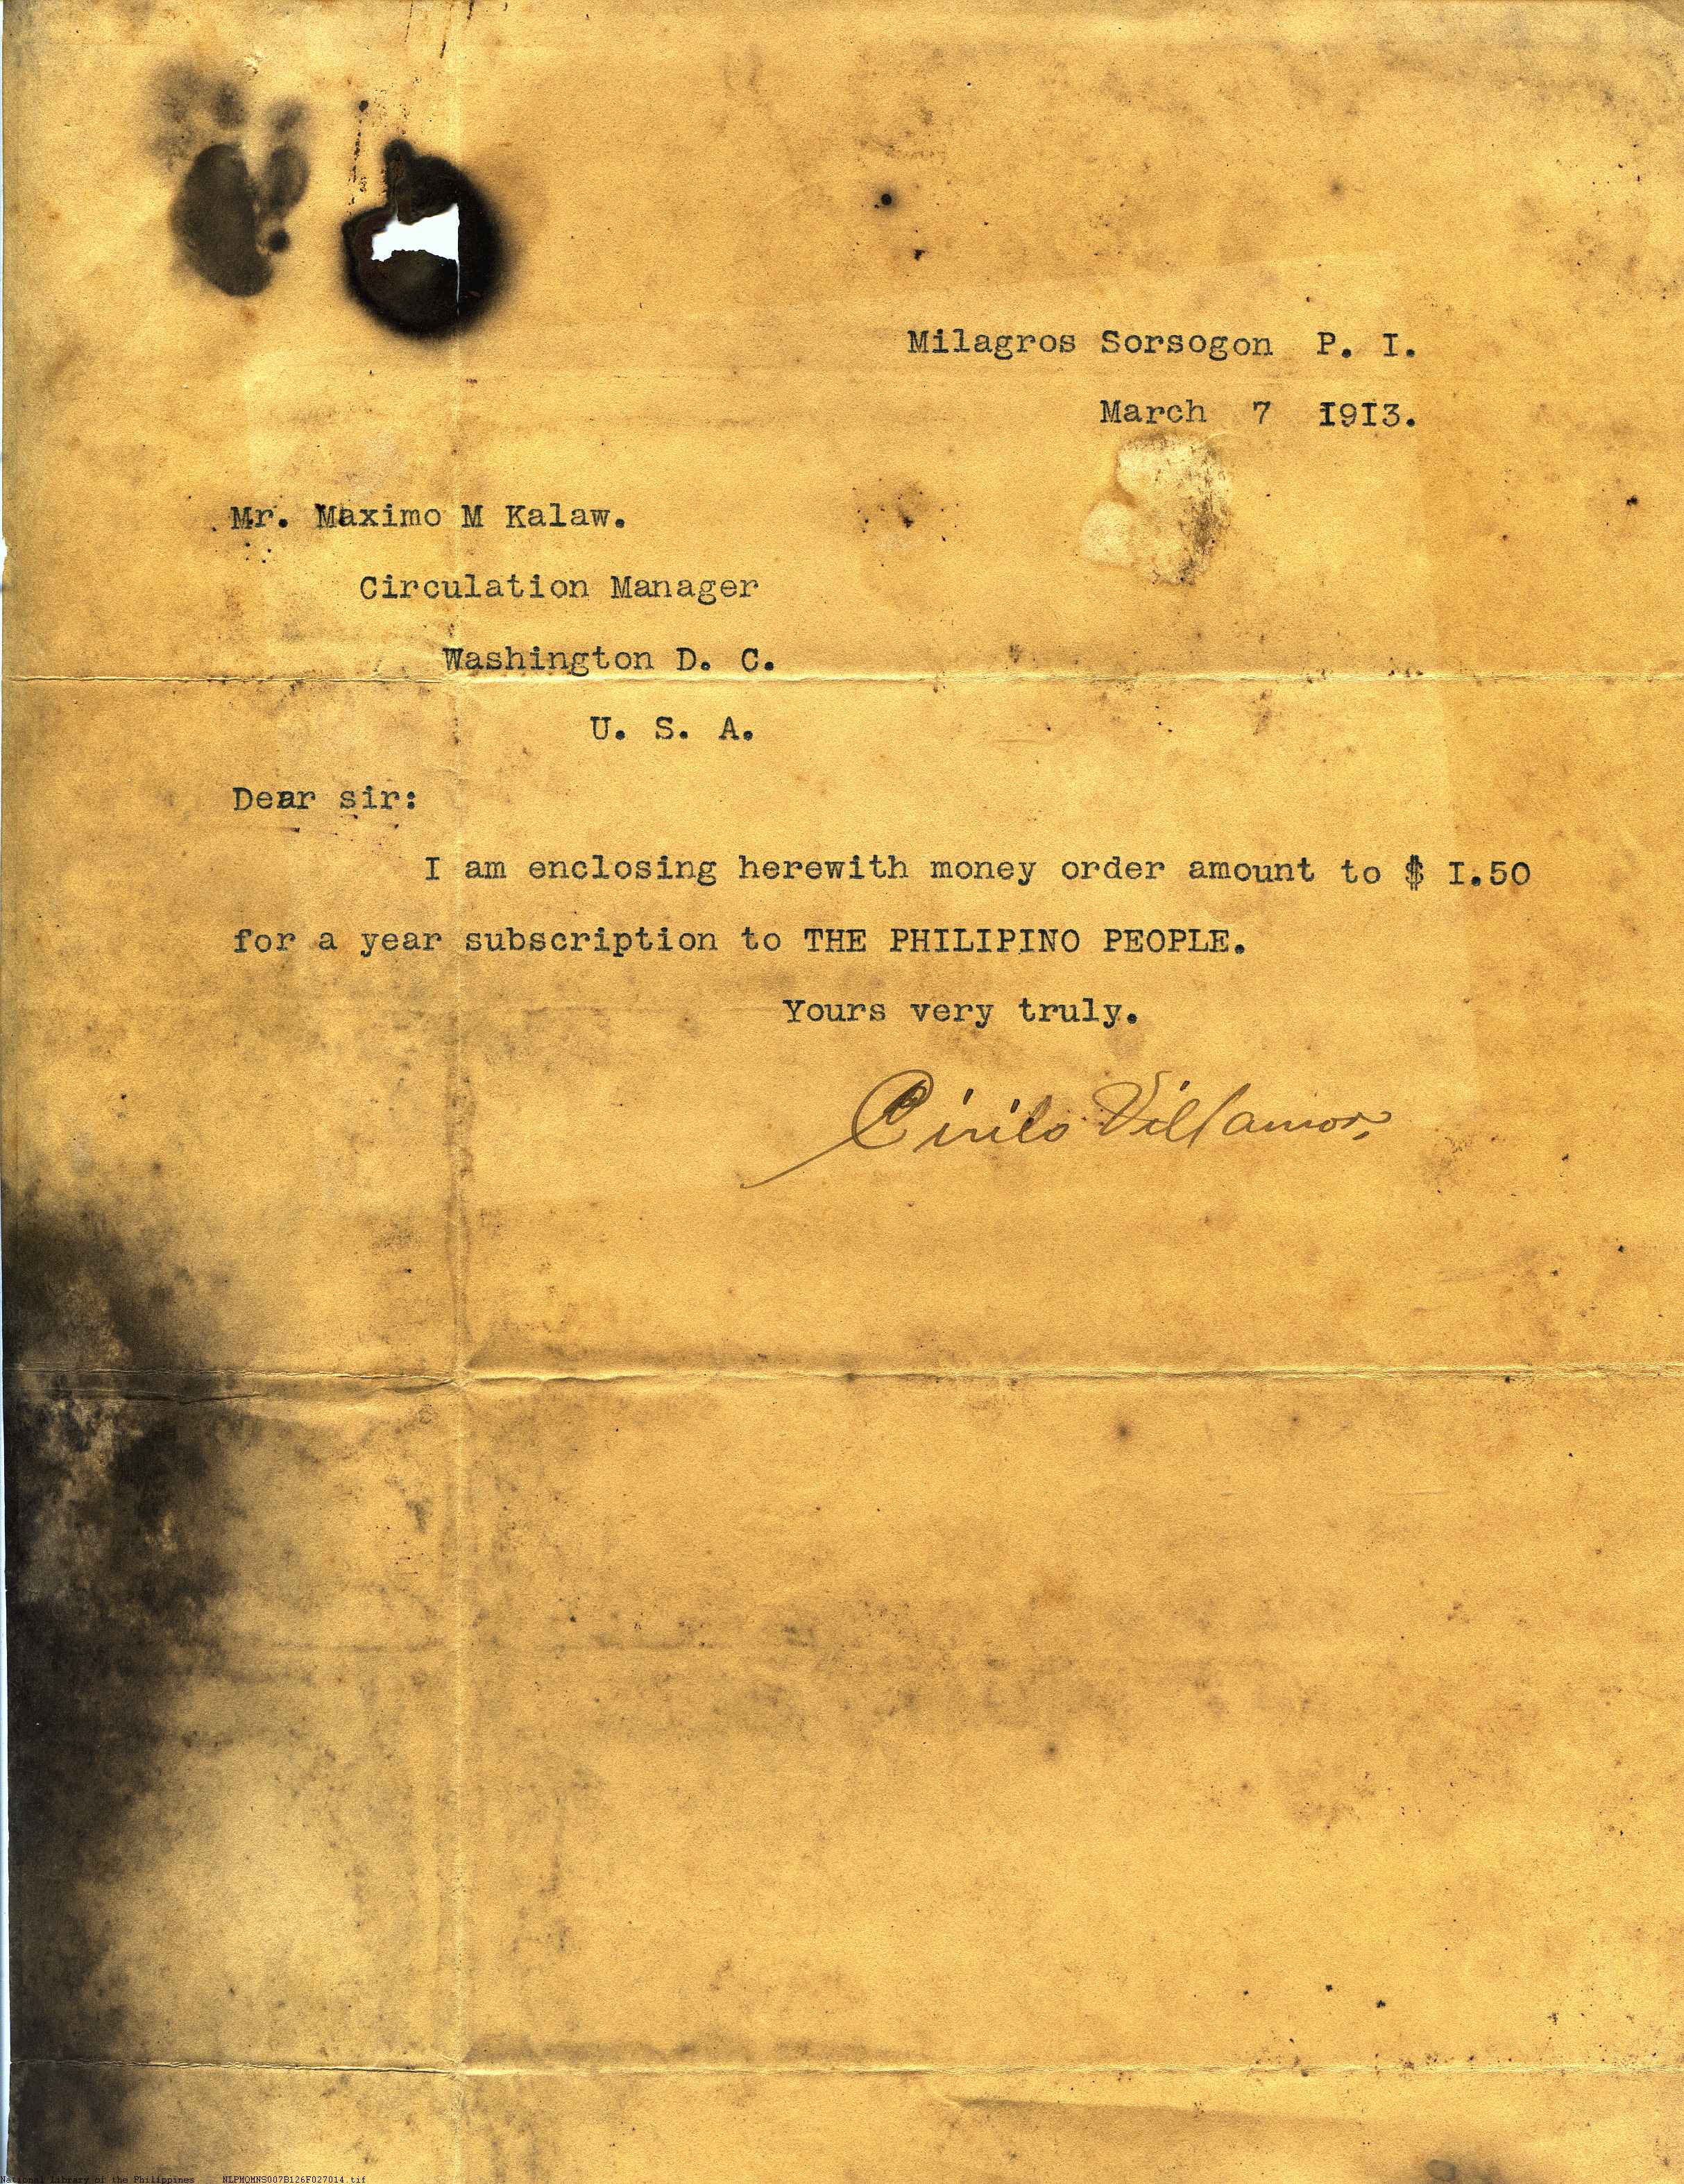 Milagros Sorsogon P. I.
March 7 1913.
Mr. Maximo M Kalaw.
Circulation Manager
Washington D. C.
U. S. A.
Dear sir:
I am enclosing herewith money order amount to $ I.50
for a year subscription to THE PHILIPINO PEOPLE.
Yours very truly.
Cirilo Villamor.
National Library of the Philippines NLPMQMNS007B126F027014.tif